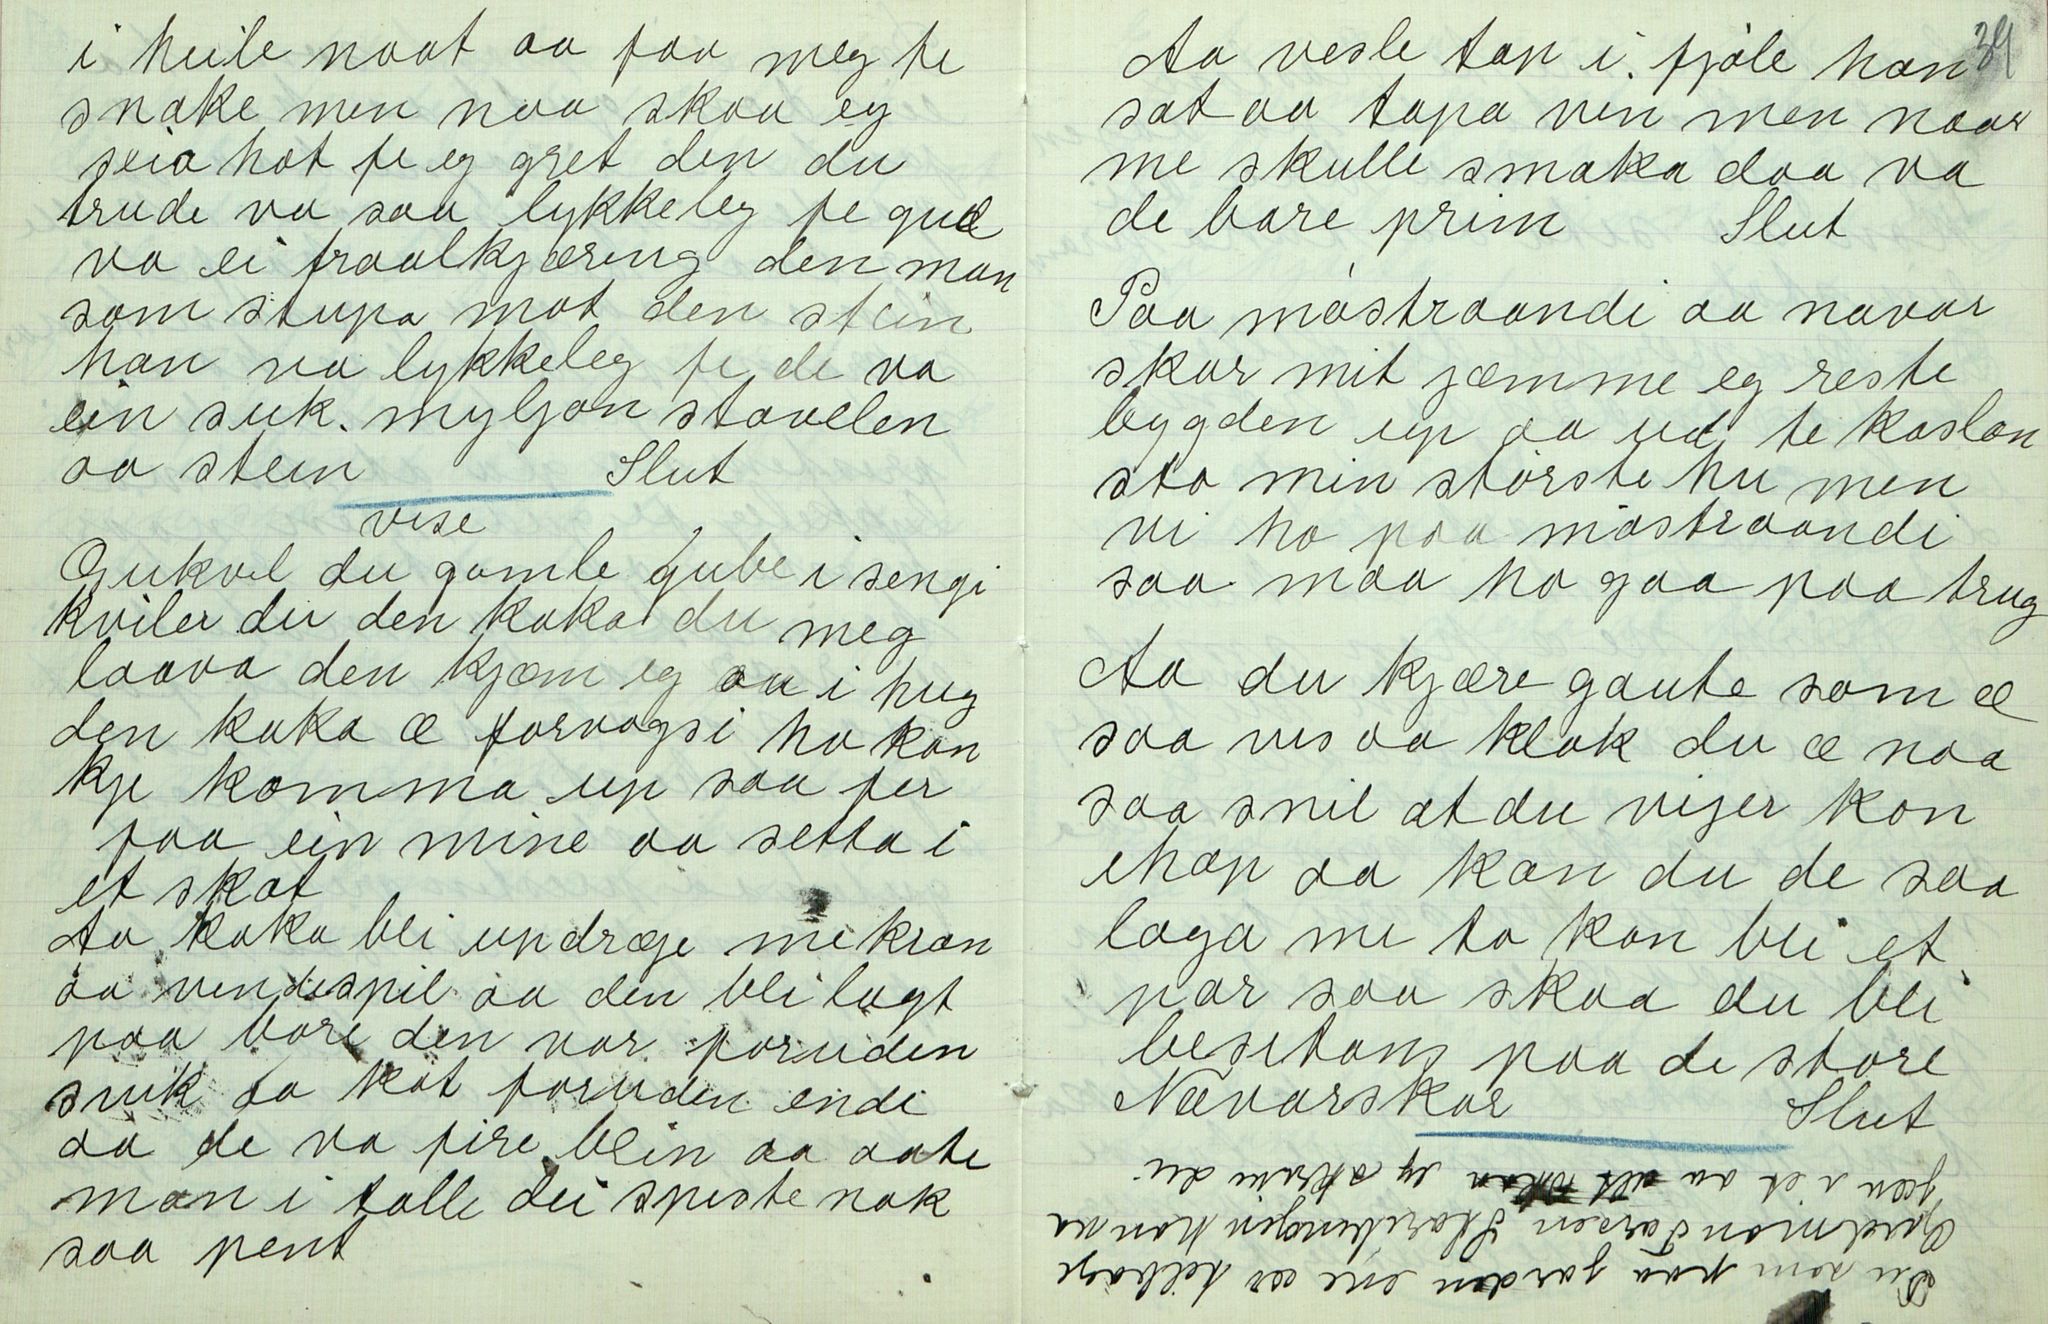 i heile naat aa faa meg te
snake men naa skaa eg
seia hot fe eg gret den du
trude va saa lykkeleg fe gul
va ei fraalkjæring den man
som stupa mot den stein
han va lykkeleg fe de va
ein suk. myljon stavelen
aa stein Slut
vise
Gukvel du gamle gube i sengi
kviler du den kaka du meg
laava den kjæm eg aa i hug
den kaka æ forvagsi ho kan
kje komma up saa fer
faa ein mine aa setta i
et skot
Aa kaka bli updræge me kran
aa vendespil aa den bli lagt
paa bore den var foruden
suik aa kot foruden endi
aa de va fire blein aa aate
man i talle dei spiste nok
saa pent
39
Aa vesle tap i fjøle han
sat aa tapa vin men naar
me skulle smaka daa va
de bare prim Slut
Paa møstraandi aa navar
skar mit jæmme eg reste
bygden up aa ud te kaslan
sto min største hu men
vi ho paa møstraandi
saa maa ho gaa paa trug
Aa du kjære gaute som æ
saa vis aa klok du æ naa
saa snil at du vijer kon
ihop aa kan du de saa
laga me to kan bli et
par saa skaa du bli
besitans paa de store
Nævarskar Slut
Du som paa garden ene er tilbage
Gudmon Tarsen han va
jæn i et aa eg skriu du